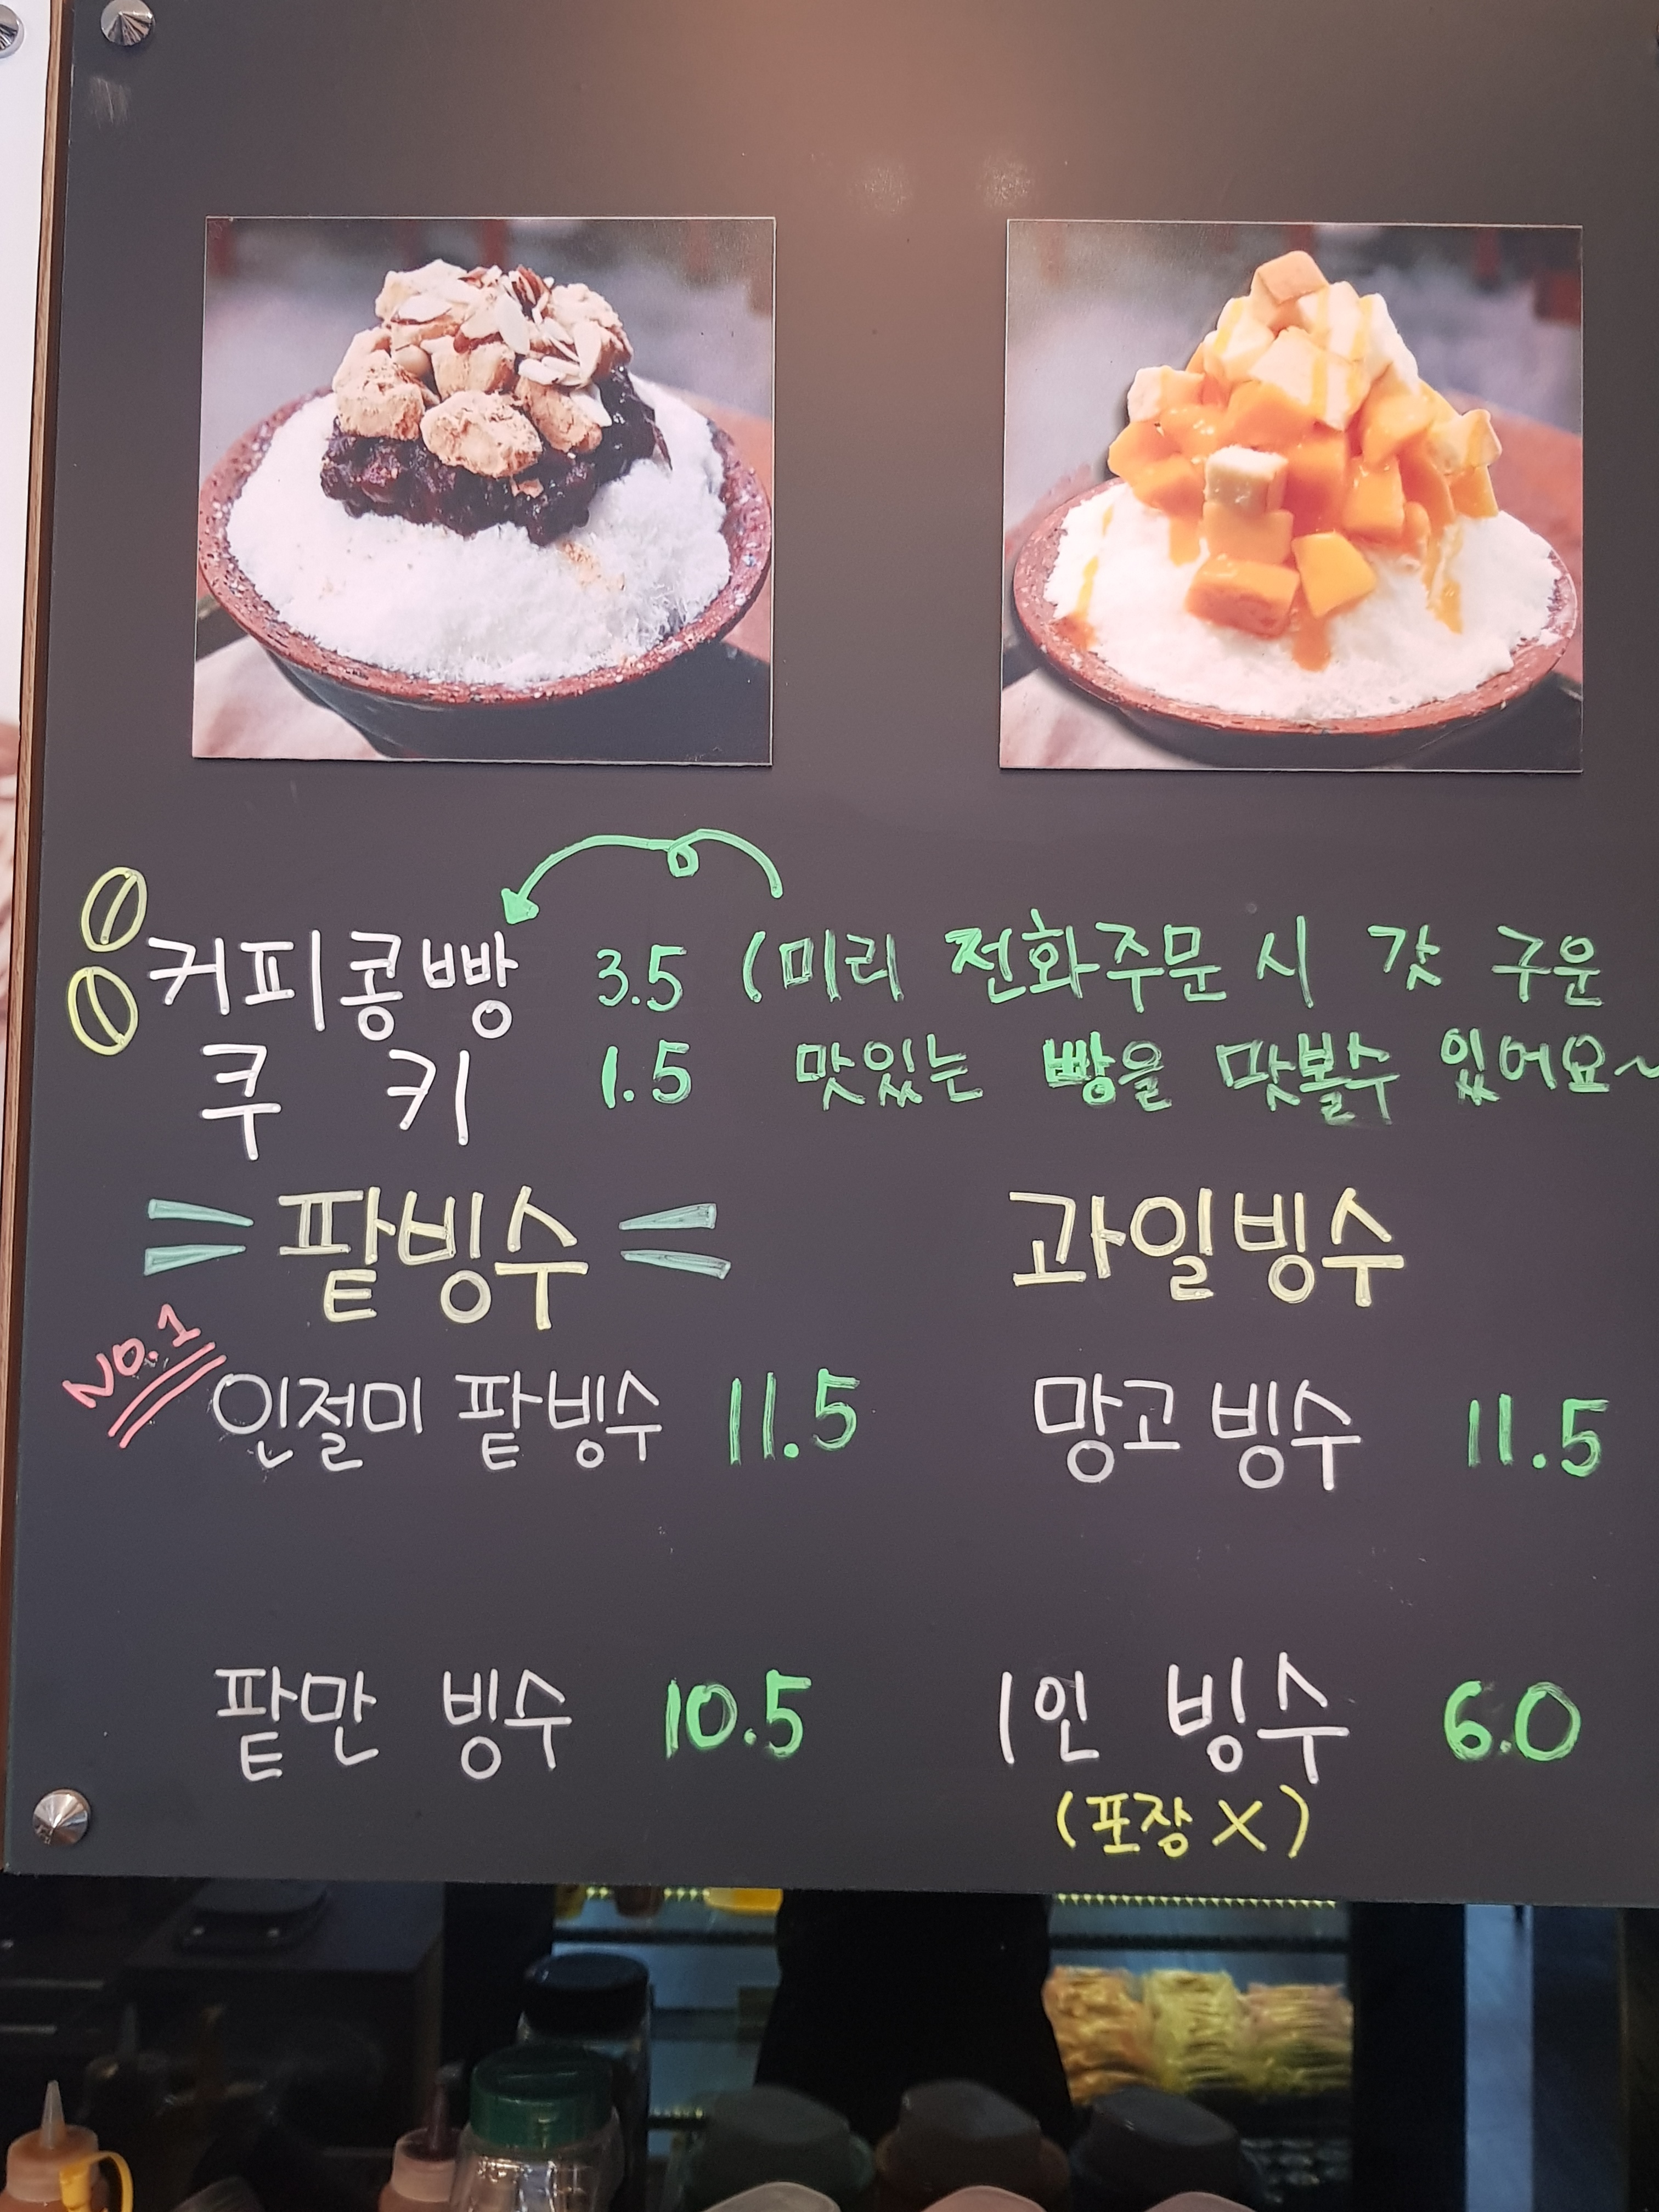 커피콩빵 3.5 (미리 전화주문 시 갓 구운
쿠 키 1.5 맛있는 빵을 맛볼수 있어요~
팥빙수
과일빙수
NO.1
인절미 팥빙수 11.5
망고 빙수 11.5
팥만 빙수 10.5
1인 빙수 6.0
(포장 X)